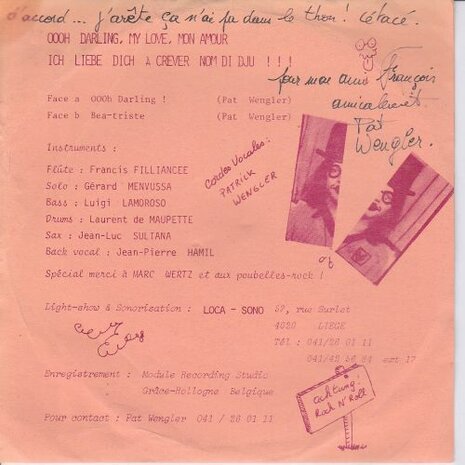 d'accord... j'arête ça n'ai pa dans le thon! cétacé.
OOOH DARLING, MY LOVE, MON AMOUR
ICH LIEBE DICH A CREVER NOM DI DJU ! ! !
pour mon ami François
amicalement
Pat
Wengler.
Face a OOOh Darling ! (Pat Wengler)
Face b Bea-triste (Pat Wengler)
Instruments :
Flûte : Francis FILLIANCEE
Solo : Gérard MENVUSSA
Bass : Luigi LAMOROSO
Drums : Laurent de MAUPETTE
Sax : Jean-Luc SULTANA
Back vocal : Jean-Pierre HAMIL
Cordes Vocales :
PATRICK
WENGLER
Spécial merci à MARC WERTZ et aux poubelles-rock !
Light-show & Sonorisation : LOCA - SONO 57, rue Surlet
4020 LIEGE
Tél : 041/26 01 11
041/42 56 84 ext 17
Enregistrement : Module Recording Studio
Grâce-Hollogne Belgique
achtung!
Rock N' Roll
Pour contact : Pat Wengler 041 / 26 01 11